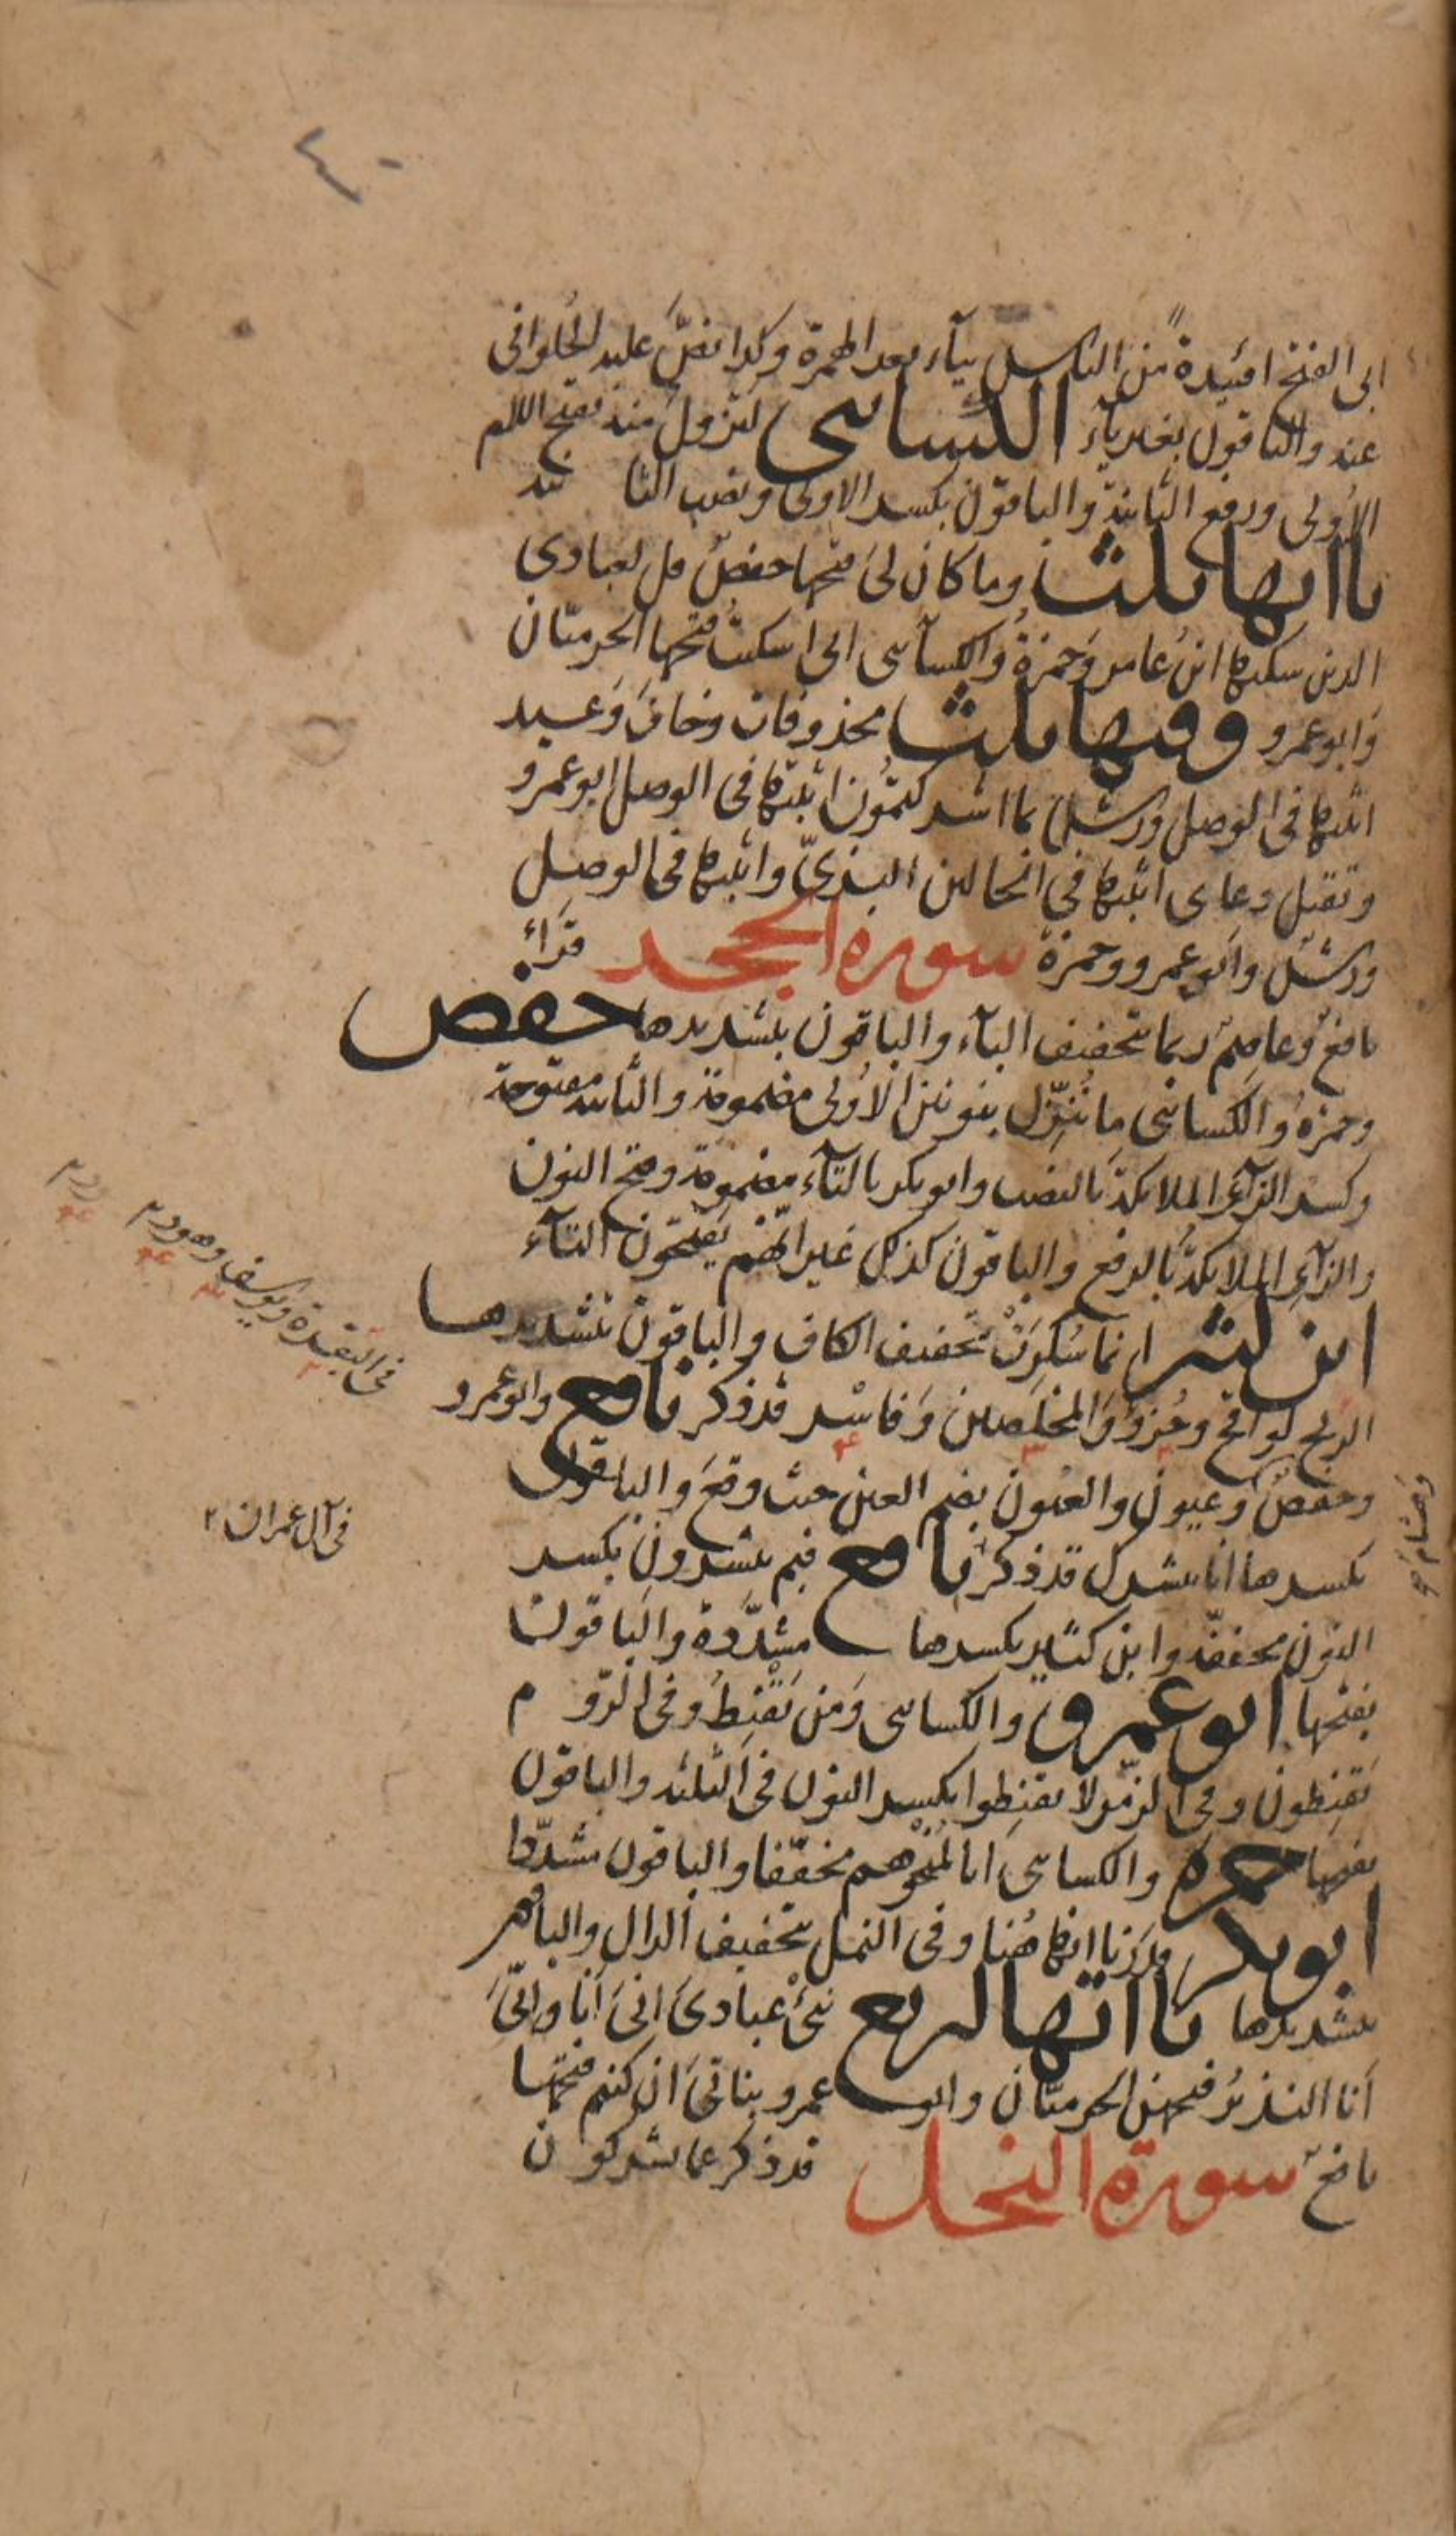 ابى الفتح افئيدةً من الناس بيآء بعد الهمزة وكذا نصَّ عليه الحُلوانى
عنه والباقون بغير يآء الكسائى لَتَزولُ منه بفتح اللام
الاُولى ورفع الثانية والباقون بكسر الاولى ونصب الثانية
يااتها ثلث وما كان لىَ فتحها حفصٌ قل لعبادى
الذين سكنها ابنُ عامر وَحمزةُ وَالكسآئى انى اسكنتُ فتحها الحرميّان
وَابو عمرو وفيها ثلث محذوفات وخافَ وَعيد
اثبتها فى الوصل ورشٌ بما اشركتمُون اثبتها فى الوصل ابو عمرو
وتقبل دعاى اثبتها فى الحالين البزىّ واثبتها فى الوصل
ورشٌ وابو عمرو وحمزة سورة الحجر قرَأ
نافعٌ وعاصمٌ ربما بتخفيف البآء والباقون بتشديدها حفص
وحمزهُ وَالكسائى ما نُنَزِّل بنونين الاُولى مضمومة والثانية مفتوحة
وكسر الزآءِ الملائكةَ بالنصب وابو بكر بالتآء مضمومة وفتح النون
والزآءِ الملائكةُ بالرفع والباقون كذلك غير انّهم يفتحون التآء
ابن كثير انما سُكِرَتْ بتخفيف الكاف والباقون بتشديدها
الريح لواقح وجُزؤٌ وَالمخلَصين وَفاسْرِ قد ذكر نافع وابو عمرو
وحفصٌ وَعيون والعُيون بضم العين حيث وقعَ وَالباقون
بكسرها انا نبشرك قد ذكر نافع فبم تبشرونِ بكسر
النون مخففّة وابن كثير بكسرها مشدَّدة والباقون
بفتحها ابو عمرو والكسائى وَمَن يَقْنِطُ وفى الروم
يَقنِطون وفى الزمر لا تقنِطوا بكسر النون فى الثلثة والباقون
بفتحها حمزة والكسائى انا لمُنْجُوهم مخفّفا والباقون مشدّدا
ابو بكر قدَرنا انها هُنا وفى النمل بتخفيف الدال والباقون
بتشديدها يااتها اربع نبّئْ عبادىَ انىَ اَنا وانّىَ
اَنا النذيرُ فتحهنَّ الحرميّان وابو عمرو بناتىَ ان كنتم فتحها
نافعٌ سورة النحل قد ذكر عما يشركون
فى البقرة ويوسف وهود
فى آل عمران ٢
وهشام